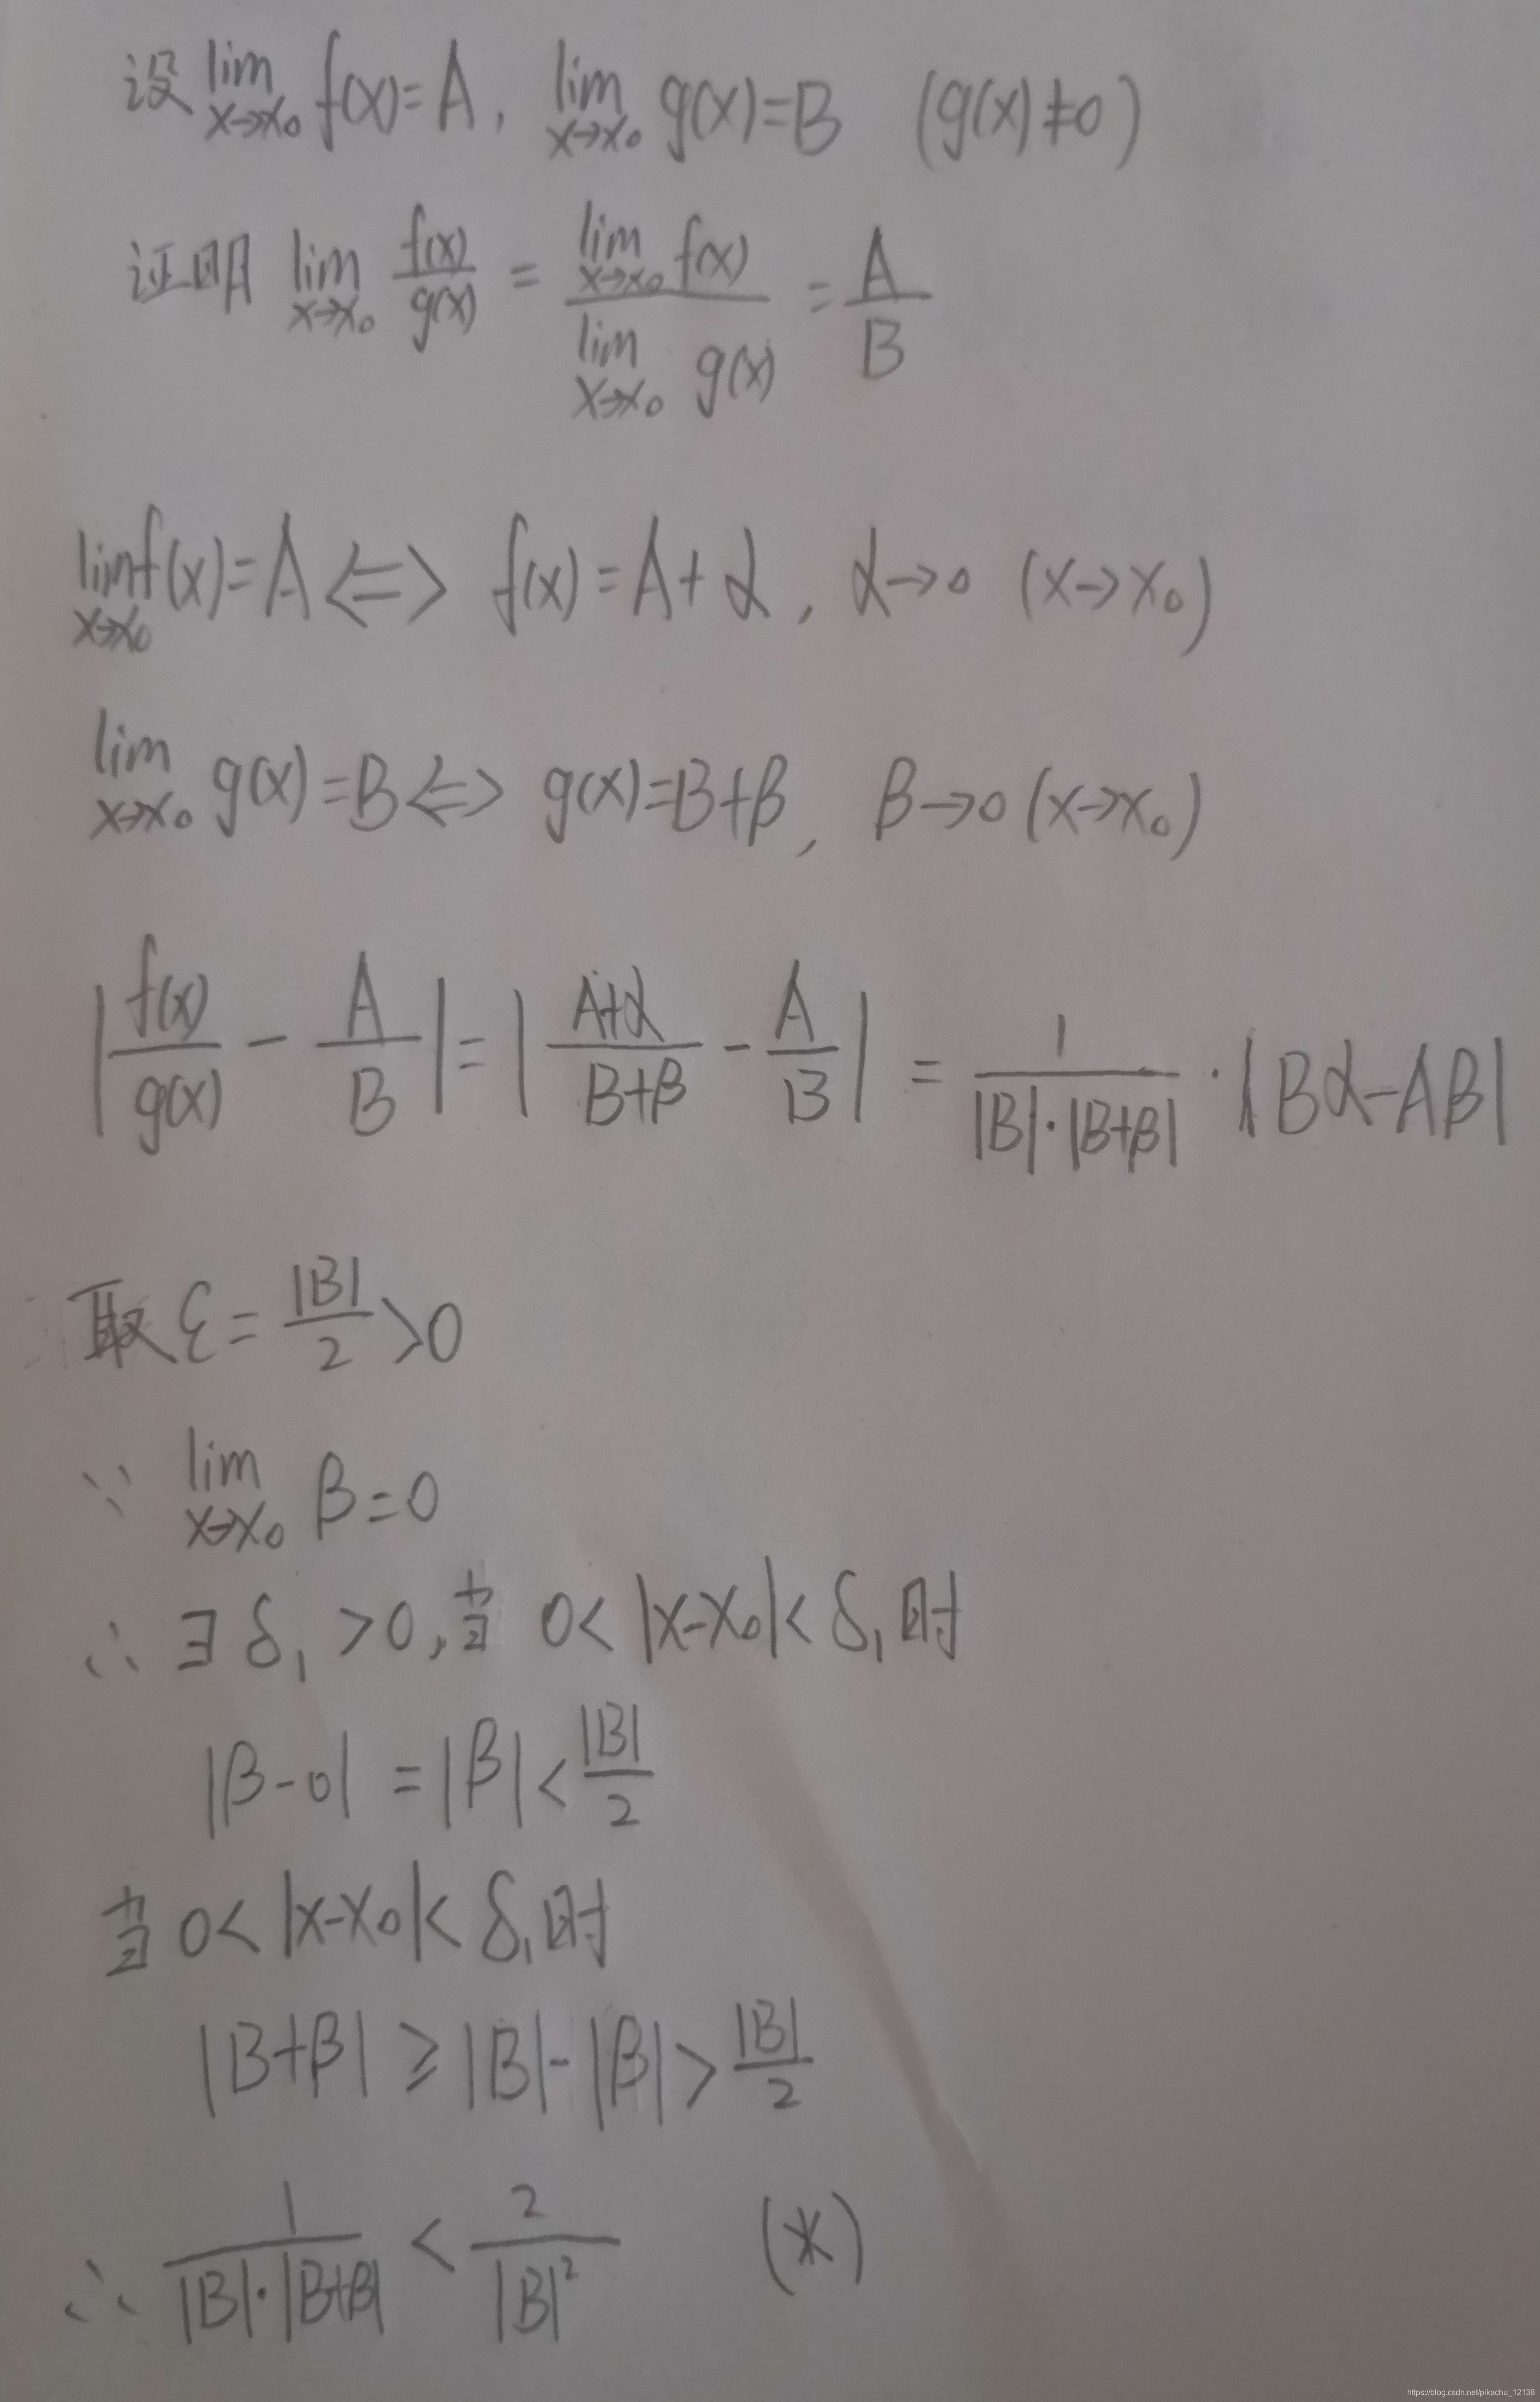 设 lim x→x₀ f(x)=A, lim x→x₀ g(x)=B (g(x)≠0)
证明 lim x→x₀ f(x)/g(x) = lim x→x₀ f(x) / lim x→x₀ g(x) = A/B
lim x→x₀ f(x)=A <=> f(x)=A+α, α→0 (x→x₀)
lim x→x₀ g(x)=B <=> g(x)=B+β, β→0 (x→x₀)
|f(x)/g(x) - A/B| = |(A+α)/(B+β) - A/B| = 1/(|B|·|B+β|) · |Bα-Aβ|
取 ε = |B|/2 >0
∵ lim x→x₀ β=0
∴ ∃ δ₁ >0, 当 0< |x-x₀| < δ₁ 时
|β-0| = |β| < |B|/2
当 0< |x-x₀| < δ₁ 时
|B+β| ≥ |B|-|β| > |B|/2
∴ 1/(|B|·|B+β|) < 2/|B|² (*)
https://blog.csdn.net/pikachu_12138